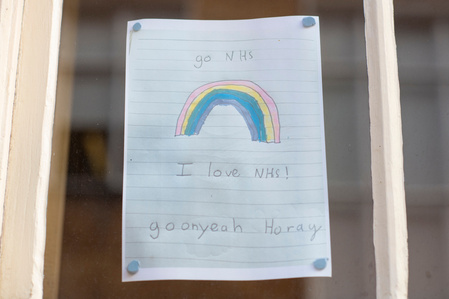 go NHS
I love NHS!
goonyeah Horay